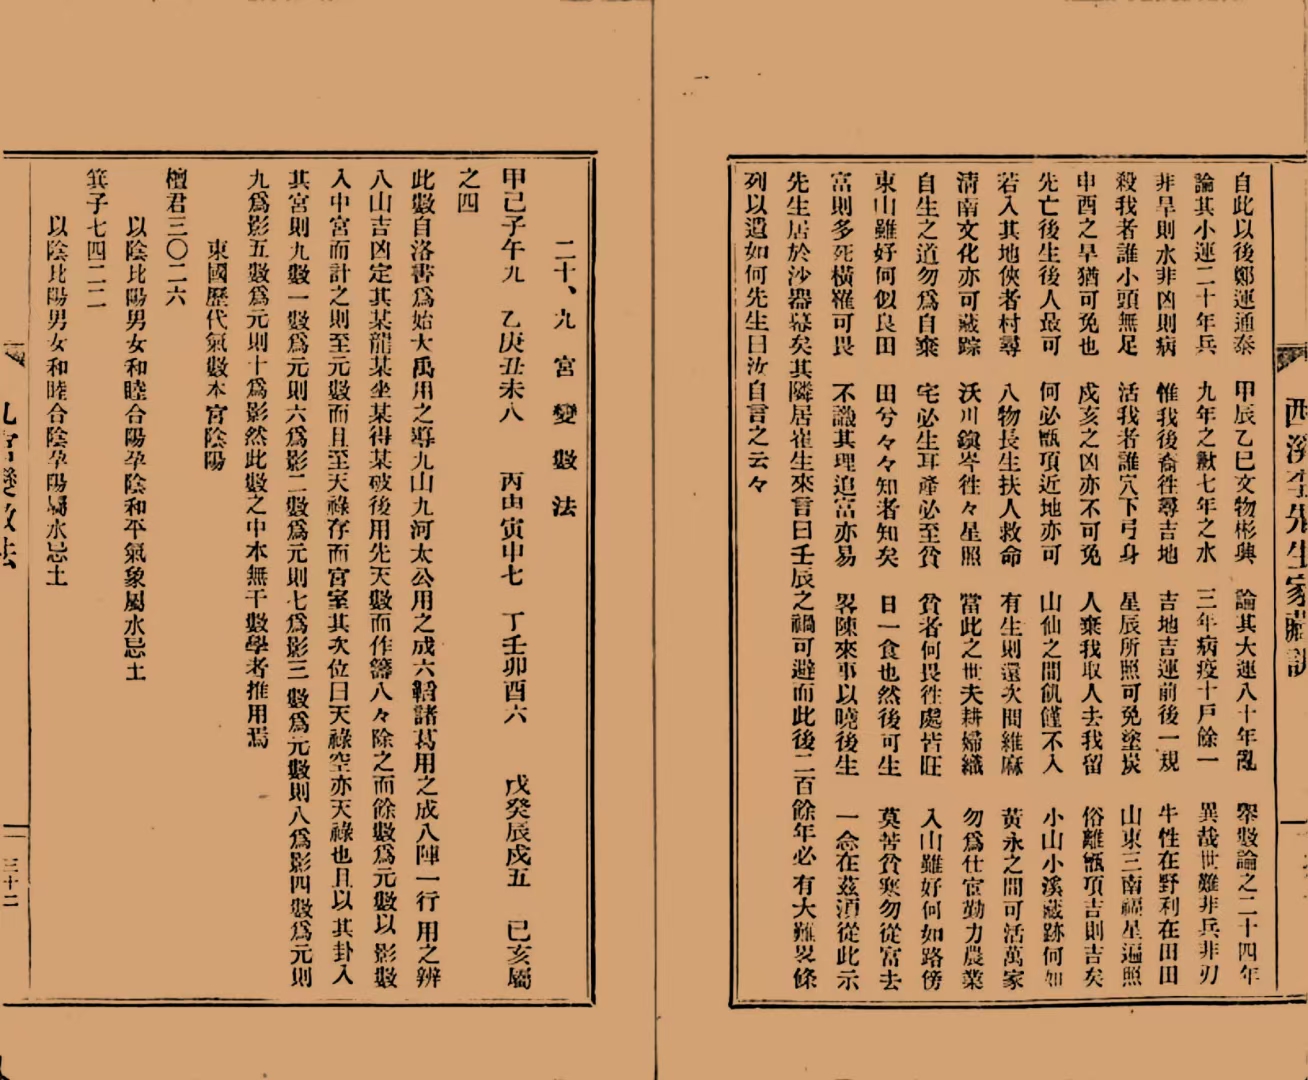 自此以後鄭運通泰 甲辰乙巳文物彬興 論其大運八十年亂 舉數論之二十四年
論其小運二十年兵 九年之歉七年之水 三年病疫十戶餘一 異哉世難非兵非刃
非旱則水非凶則病 惟我後裔徃尋吉地 吉地吉運前後一規 牛性在野利在田田
殺我者誰小頭無足 活我者誰穴下弓身 星辰所照可免塗炭 山東三南福星遍照
申酉之旱猶可免也 戌亥之凶亦不可免 人棄我取人去我留 俗離甑項吉則吉矣
先亡後生後人最可 何必甑項近地亦可 山仙之間飢饉不入 小山小溪藏跡何如
若入其地俠者村尋 八物長生扶人救命 有生則還次間維麻 黃永之間可活萬家
淸南文化亦可藏踪 沃川鎭岑徃々星照 當此之世夫耕婦織 勿爲仕宦勤力農業
自生之道勿爲自棄 宅必生耳產必至貧 貧者何畏徃處皆旺 入山雖好何如路傍
東山雖好何似良田 田兮々々知者知矣 日一食也然後可生 莫苦貧寒勿從富去
富則多死橫罹可畏 不識其理追富亦易 畧陳來事以曉後生 一念在茲須從此示
先生居於沙器幕矣其隣居崔生來言曰壬辰之禍可避而此後二百餘年必有大難畧條
列以還如何先生曰汝自言之云々
西溪李先生家藏訣
二十、九宮變數法
甲己子午九 乙庚丑未八 丙由寅申七 丁壬卯酉六 戊癸辰戌五 巳亥屬
之四
此數自洛書爲始大禹用之導九山九河太公用之成六韜諸葛用之成八陣一行用之辨
八山吉凶定其某龍某坐某得某破後用先天數而作籌八々除之而餘數爲元數以影數
入中宮而計之則至元數而且至天祿存而宮室其次位曰天祿空亦天祿也且以其卦入
其宮則九數一數爲元則六爲影二數爲元則七爲影三數爲元數則八爲影四數爲元則
九爲影五數爲元則十爲影然此數之中本無干數學者推用焉
東國歷代氣數本宮陰陽
檀君三〇二六
以陰比陽男女和睦合陽孕陰和平氣象屬水忌土
箕子七四二二
以陰比陽男女和睦合陰孕陽屬水忌土
九宮變數法
三十二